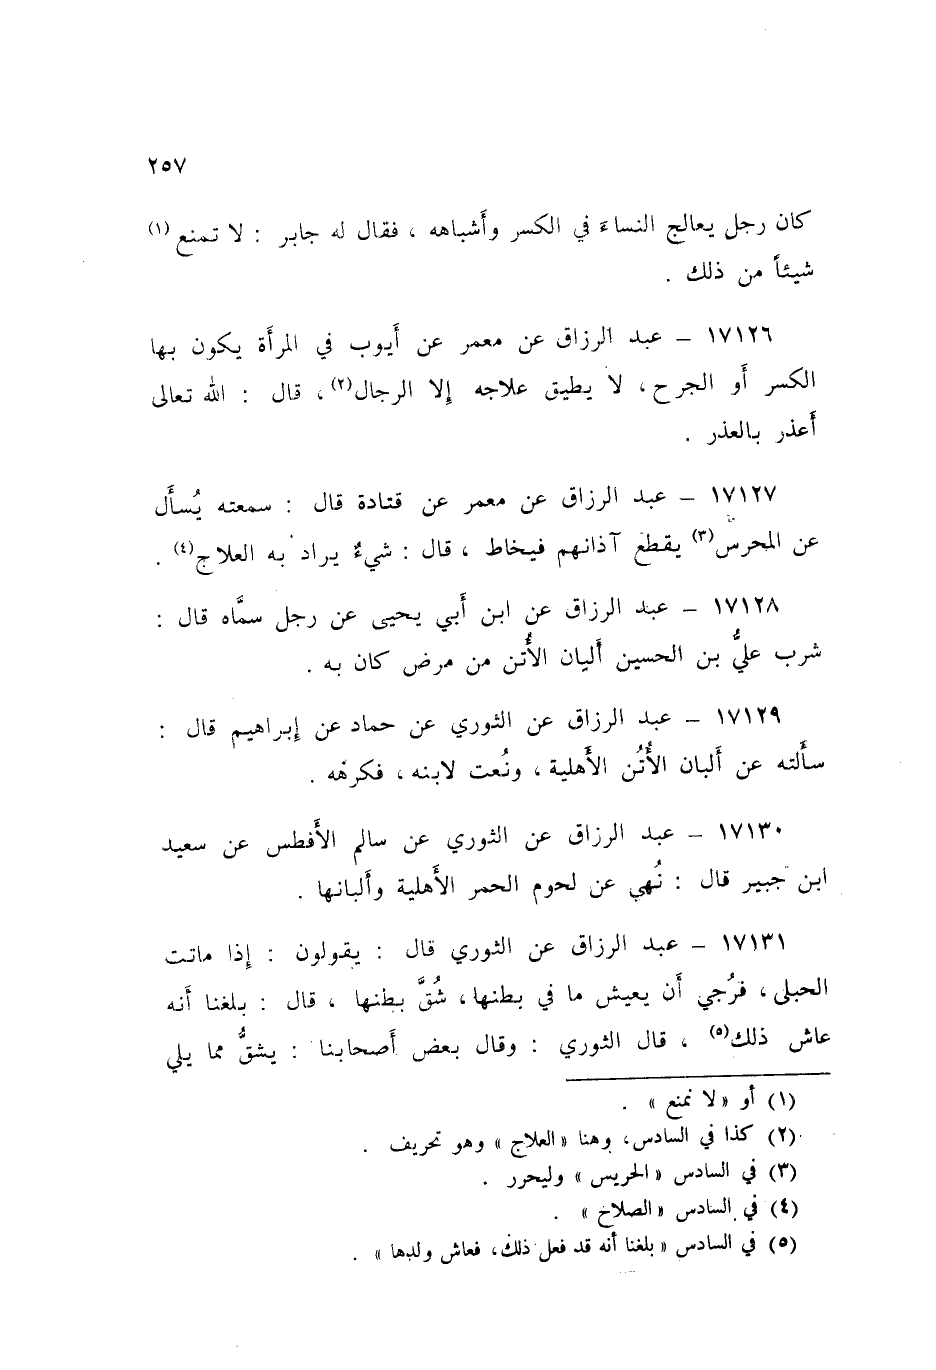 ٢٥٧
كان رجل يعالج النساءَ في الكسر وأَشباهه ، فقال له جابر : لا تمنع (١)
شيئاً من ذلك .
١٧١٢٦ – عبد الرزاق عن معمر عن أَيوب في المرأَة يكون بها
الكسر أَو الجرح ، لا يطيق علاجه إلا الرجال (٢) ، قال : الله تعالى
أَعذر بالعذر .
١٧١٢٧ – عبد الرزاق عن معمر عن قتادة قال : سمعته يُسأَل
عن المحرس (٣) يقطع آذانهم فيخاط ، قال : شيءٌ يراد به العلاج (٤) .
١٧١٢٨ – عبد الرزاق عن ابن أَبي يحيى عن رجل سمَّاه قال :
شرب عليُّ بن الحسين أَلبان الأُتُن من مرض كان به .
١٧١٢٩ – عبد الرزاق عن الثوري عن حماد عن إبراهيم قال :
سأَلته عن أَلبان الأُتُن الأَهلية ، ونُعت لابنه ، فكرهه .
١٧١٣٠ – عبد الرزاق عن الثوري عن سالم الأَفطس عن سعيد
ابن جبير قال : نُهي عن لحوم الحمر الأَهلية وأَلبانها .
١٧١٣١ – عبد الرزاق عن الثوري قال : يقولون : إذا ماتت
الحبلى ، فرُجي أَن يعيش ما في بطنها ، شُقَّ بطنها ، قال : بلغنا أَنه
عاش ذلك (٥) ، قال الثوري : وقال بعض أَصحابنا : يشقُّ مما يلي
(١) أو « لا نمنع » .
(٢) كذا في السادس ، وهنا « العلاج » وهو تحريف .
(٣) في السادس « الحريس » وليحرر .
(٤) في السادس « الصلاخ » .
(٥) في السادس « بلغنا أنه قد فعل ذلك ، فعاش ولدها » .